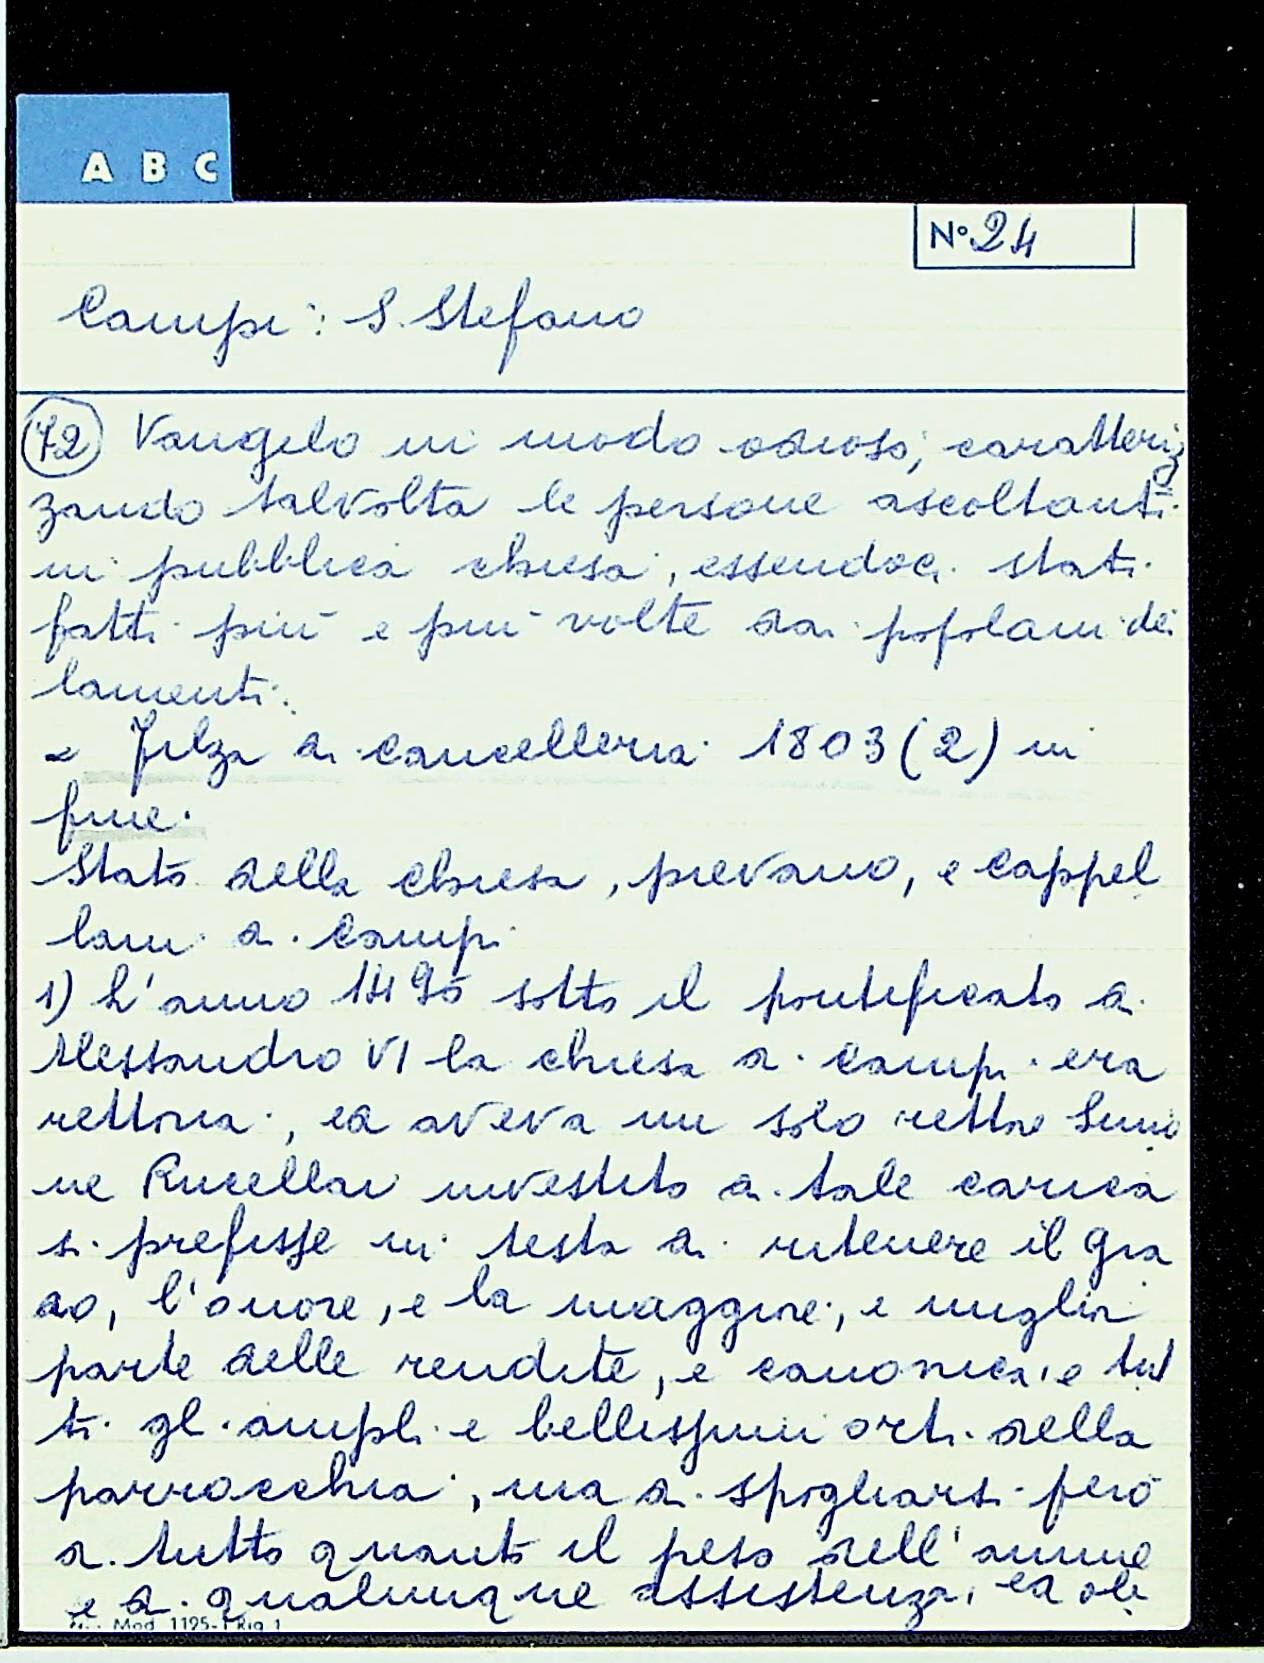 A B C
N° 24
Campi: S. Stefano
72 Vangelo in modo odioso, caratteriz
zando talvolta le persone ascoltanti
in pubblica chiesa, essendoci stati
fatti più e più volte dai popolani dei
lamenti.
= Filza di cancelleria 1803 (2) in
fine.
Stato della chiesa, pievano, e cappel
lani di Campi
1) L'anno 1495 sotto il pontificato di
Alessandro VI la chiesa di Campi era
rettoria, ed aveva un solo rettore Simo
ne Rucellai investito di tale carica
si prefisse in testa di ritenere il gra
do, l'onore, e la maggiore, e miglior
parte delle rendite, e canonica, e tut
ti gli ampli e bellissimi orti della
parrocchia, ma di spogliarsi però
di tutto quanto il peso dell'anime
e di qualunque assistenza, ed ob
Mod. 1195-1 Rig 1